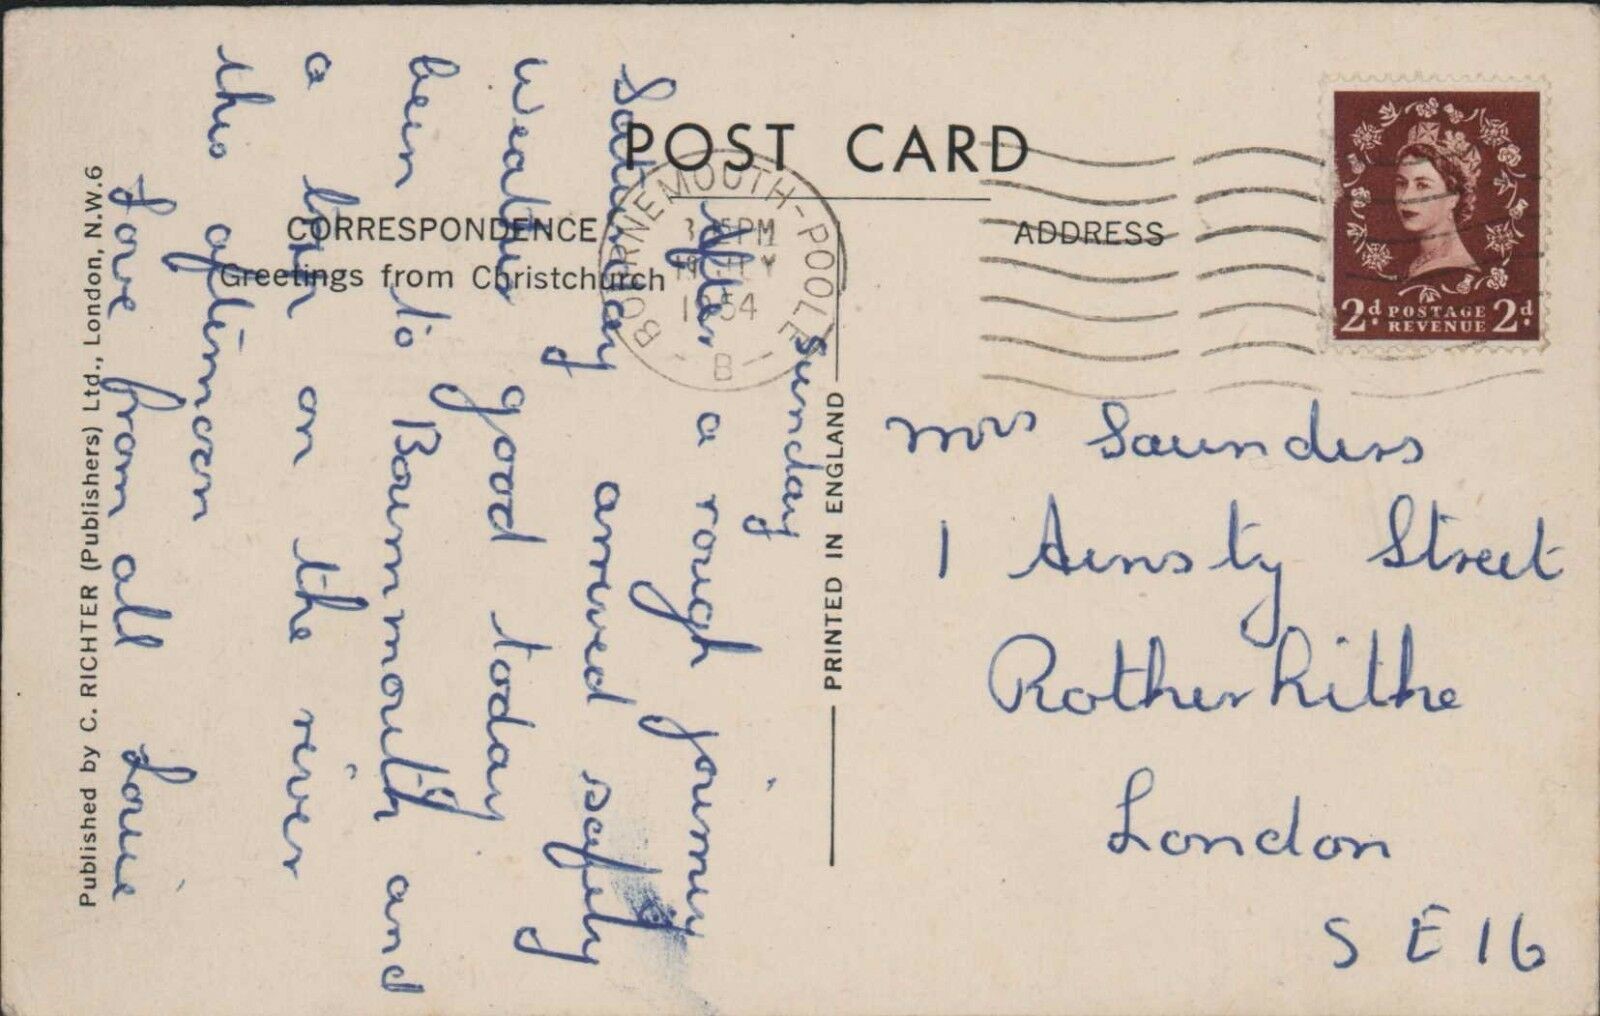 POST CARD
CORRESPONDENCE
ADDRESS
Greetings from Christchurch
BOURNEMOUTH-POOLE
PM
1954
B
2d. POSTAGE 2d.
REVENUE
Sunday
After a rough journey
Saturday arrived safely
Weather good today
been to Bournmouth and
a on the river
this afternoon
Love from all Louie
Published by C. RICHTER (Publishers) Ltd., London, N.W.6
PRINTED IN ENGLAND
Mrs Saunders
1 Ainsty Street
Rotherhithe
London
S E 16